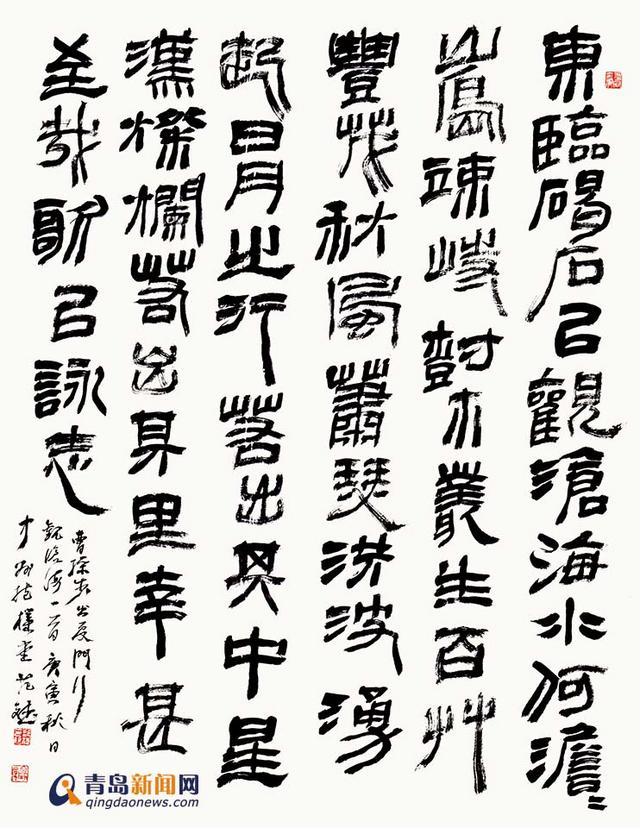 東臨碣石㠯觀滄海水何澹〻
山島竦峙樹木叢生百艸
豐茂秋風蕭瑟洪波湧
起日月之行若出其中星
漢燦爛若出其里幸甚
至哉歌㠯詠志
曹操步出夏門行
觀滄海一首庚寅秋日
青岛新闻网
qingdaonews.com